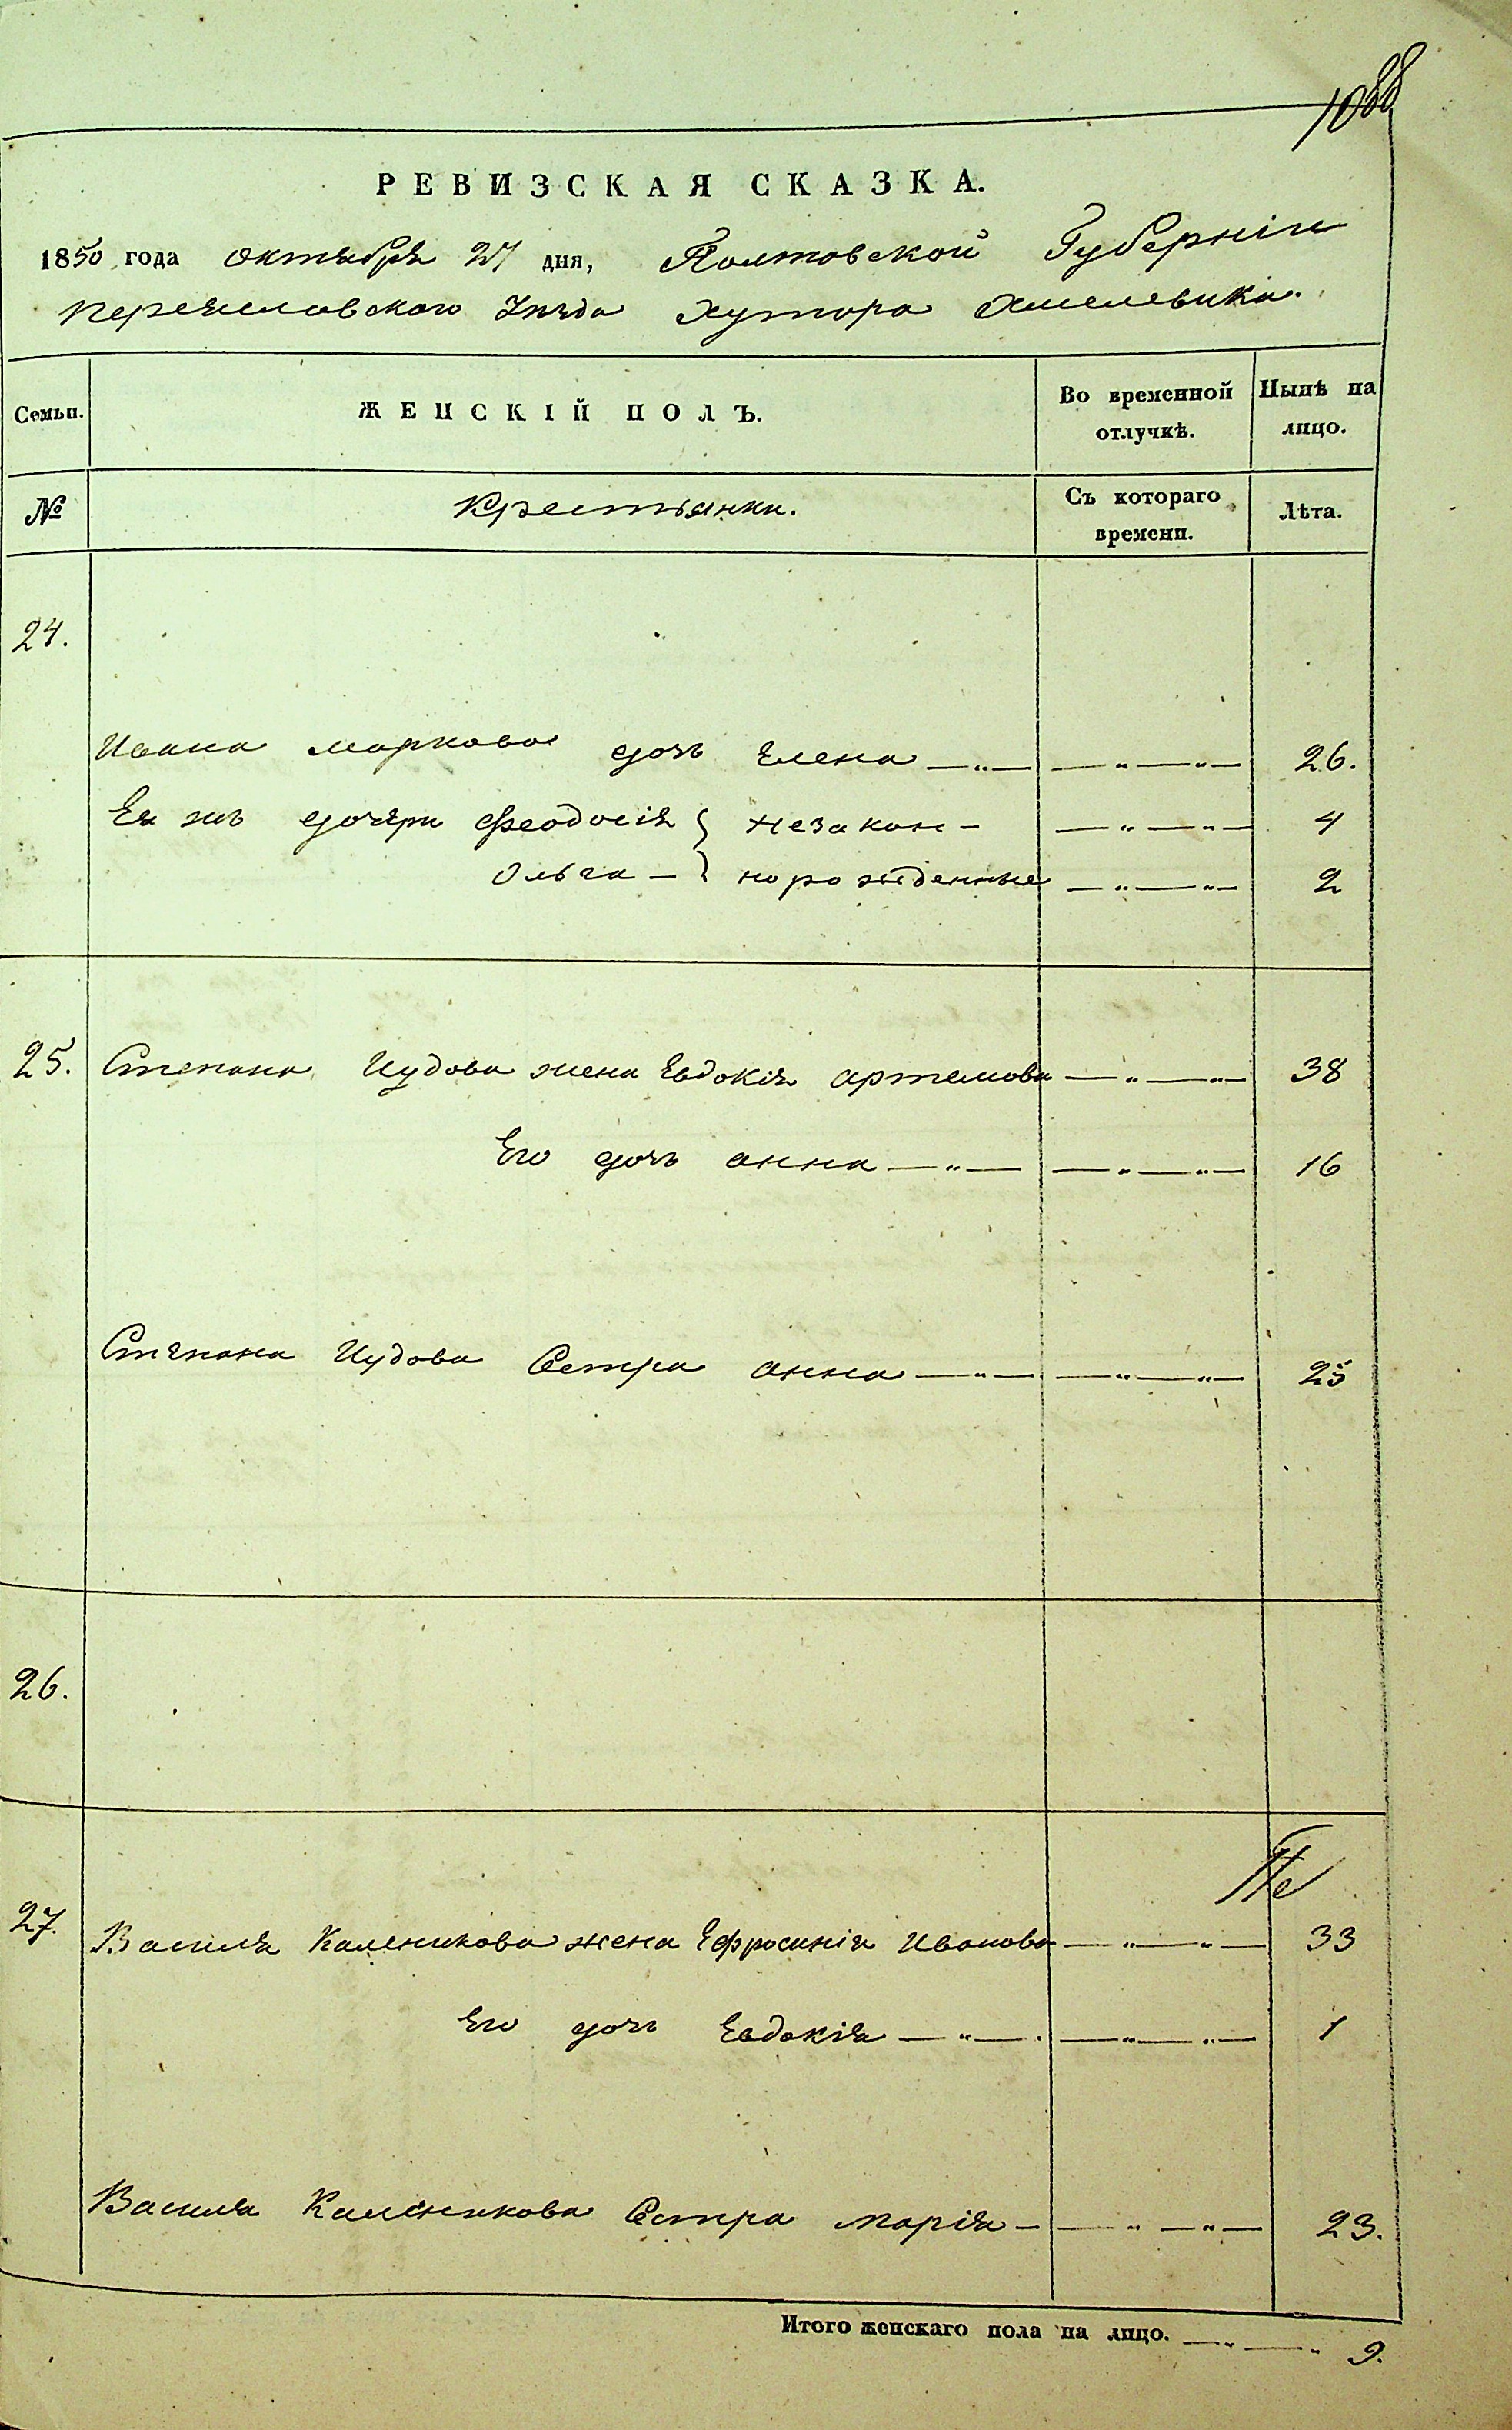 1088
РЕВИЗСКАЯ СКАЗКА.
1850 года октября 27 дня, Полтовской Губерніи
Переяславского Уезда хутора Хмелевика.
Семьи. ЖЕНСКІЙ ПОЛЪ. Во временной отлучкѣ. Нынѣ на лицо.
№ Крестьянки. Съ котораго времени. Лѣта.
24.
Ивана Маркова дочь Елена —„— —„—„— 26.
Ея жъ дочери Феодосія } незакон- —„—„— 4
Ольга — } норожденные —„—„— 2
25. Степана Иудова жена Евдокія Артемова —„—„— 38
Его дочь Анна —„— —„—„— 16
Степана Иудова Сестра Анна —„— —„—„— 25
26.
27. Василя Каленикова жена Ефросинія Иванова —„—„— 33
Его дочь Евдокія —„— —„—„— 1
Василя Каленикова Сестра Марія — —„—„— 23.
Итого женскаго пола на лицо. —„—„ 9.